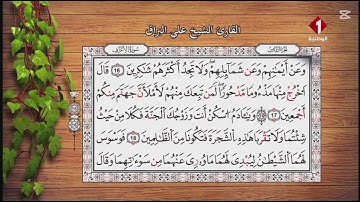 القارئ الشيخ علي البراق
الوطنية 1
سورة الأعراف
الجزء الثامن
وَعَنْ أَيْمَٰنِهِمْ وَعَن شَمَآئِلِهِمْ وَلَا تَجِدُ أَكْثَرَهُمْ شَٰكِرِينَ 16 قَالَ
اَخْرُجْ مِنْهَا مَذْءُومًا مَّدْحُورًا لَّمَن تَبِعَكَ مِنْهُمْ لَأَمْلَأَنَّ جَهَنَّمَ مِنكُمْ
أَجْمَعِينَ 17 وَيَٰٓـَٔادَمُ اُسْكُنْ أَنتَ وَزَوْجُكَ اَلْجَنَّةَ فَكُلَا مِنْ حَيْثُ
شِئْتُمَا وَلَا تَقْرَبَا هَٰذِهِ اِلشَّجَرَةَ فَتَكُونَا مِنَ اَلظَّٰلِمِينَ 18 فَوَسْوَسَ
لَهُمَا اَلشَّيْطَٰنُ لِيُبْدِيَ لَهُمَا مَا وُۥرِيَ عَنْهُمَا مِن سَوْءَٰتِهِمَا وَقَالَ